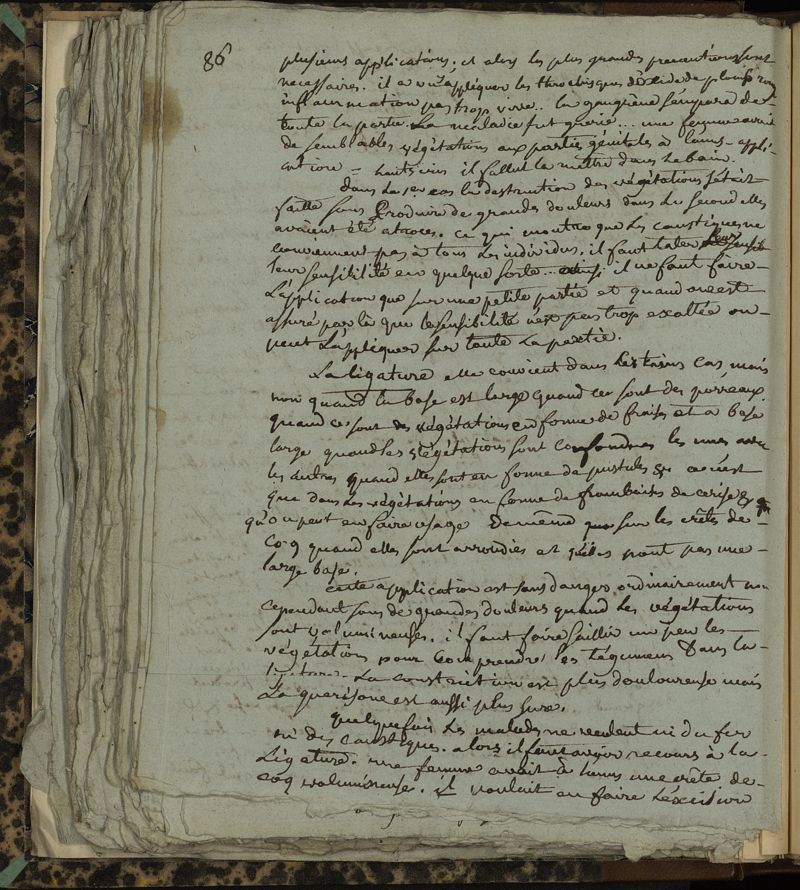 86
plusieurs applications. et alors les plus grandes precautions sont
necessaires. il a vu appliquer les throchisques d'oxide de plomb rouge
inflammation pas trop vive.. la gangrene s'empara de
toute la partie. La maladie fut guerie... une femme avait
de semblables végétations aux parties génitales à l'anus - appli-
cation = hauts cris il fallut la mettre dans le bain.
dans le 1er cas la destruction des végétations s'était
faitte sans produire de grandes douleurs dans le second elles
avaient été atroces. ce qui montre que les caustiques ne
conviennent pas à tous les individus. il faut tater
leur sensibilité en quelque sorte... il ne faut faire
L'application que sur une petite partie et quand on est
assuré par là que la sensibilité n'est pas trop exaltée on
peut L'appliquer sur toute La partie.
La ligature elle convient dans certains cas, mais
non quand la base est large quand ce sont des porreaux
quand ce sont des végétations en forme de fraises et a base
large quand les végétations sont confondues les unes avec
les autres quand elles sont en forme de pustules &c ce n'est
que dans les végétations en forme de framboises de cerise &c
qu'on peut en faire usage De même que sur les crêtes de
coq quand elles sont arrondies et qu'elles n'ont pas une
large base.
cette application est sans danger ordinairement non
cependant sans de grandes douleurs quand les végétations
sont volumineuses. il faut faire saillir un peu les
végétations pour comprendre les tégumens dans la
ligature. La constriction est plus douloureuse mais
La guerison est aussi plus sure.
quelquefois les malades ne veulent ni du fer
ni des caustiques. alors il faut avoir recours à la
Ligature. une femme avait à l'anus une crête de
coq volumineuse. il voulait en faire L'excision